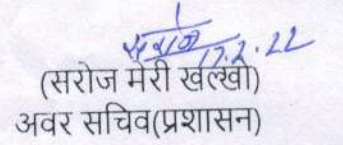 सरोज
17.2.22
(सरोज मेरी खल्खो)
अवर सचिव(प्रशासन)